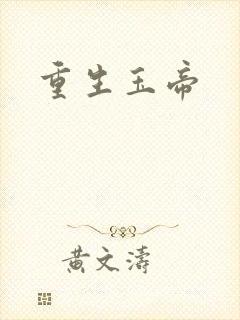 重生玉帝
黄文濤